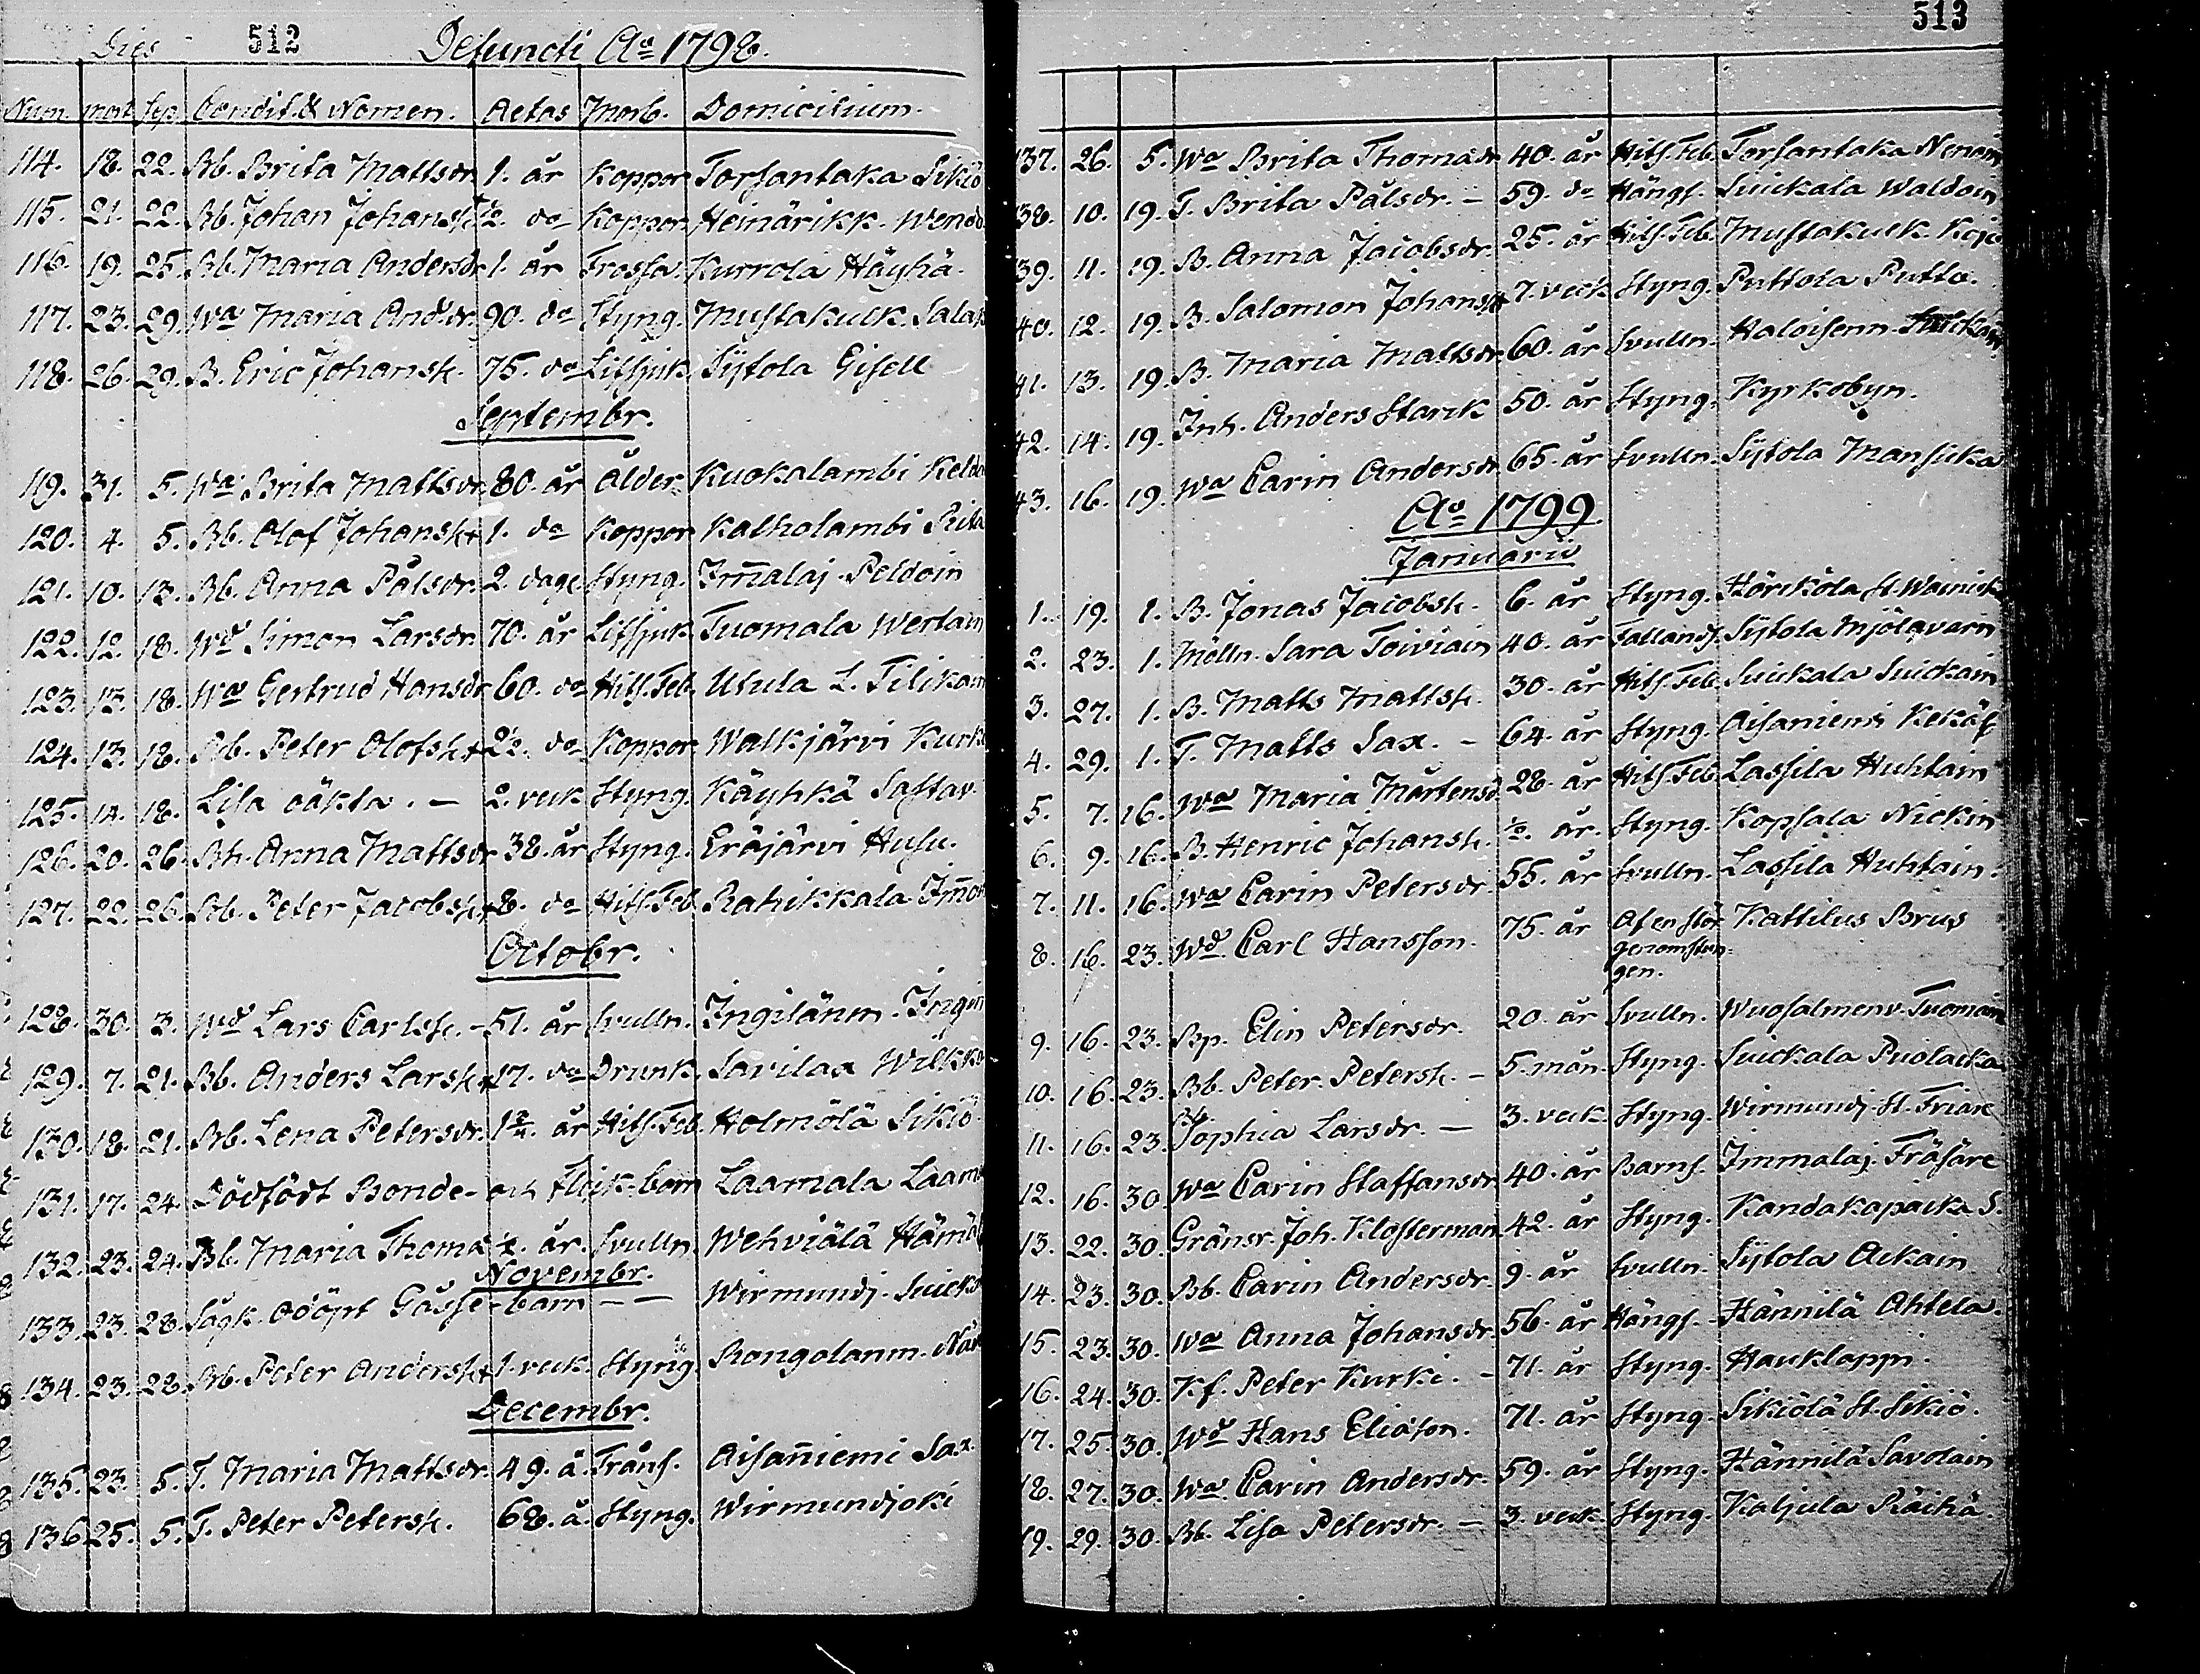 Dies 512 Defuncti Aº 1798.
Num. mort. sep. Condit. & Nomen. Aetas Morb. Domicilium.
114. 18. 22. Bb. Brita Mattsdr. 1. år Koppor Torsantaka Sikiö
115. 21. 22. Bb. Johan Johanss. ½ do Koppor Heinärikk. Wendo
116. 19. 25. Bb. Maria Andersdr 1. år Trossa. Kurrola Häyhä.
117. 23. 29. Wa Maria And.dr. 90. do Styng. Mustakuck. Sala
118. 26. 29. B. Eric Johanss. 75. do Lifsjuk. Sijtola Gisell
Septembr.
119. 31. 5. Wa Brita Mattsdr. 80. år ålder Kuokalambi Keld
120. 4. 5. Bb. Olof Johanss. 1. do Koppor Kalholambi Rita
121. 10. 13. Bb. Anna Pålsdr. 2. dage Styng. Im̅alaj. Peldoin
122. 12. 18. Wd Simon Larsdr. 70. år Lifsjuk. Tuomala Wertain
123. 13. 18. Wa Gertrud Hansdr 60. do Hits.Feb. Utula L. Tilikain
124. 13. 18. Bb. Peter Olofss. 2½. do Koppor Walkjärvi Kurk
125. 14. 18. Lisa oäkta. – 2. veck Styng. Käyhkä Sastav.
126. 20. 26. Bh. Anna Mattsdr 38. år Styng. Eräjärvi Husu.
127. 22. 26. Bb. Peter Jacobss. 8. do Hits.Feb. Rahikkala Im̅on
Octobr.
128. 30. 3. Wd Lars Carlss. – 51. år Svulln. Ingilänm. Ingin
129. 7. 21. Bb. Anders Larss. 17. do Drunk. Savilax Wilkko
130. 18. 21. Bb. Lena Petersdr. 1¾. år Hits.Feb. Holmölä Sikiö.
131. 17. 24. Dödfödt Bonde- och Flick-barn Laamala Laam
132. 23. 24. Bb. Maria Thomæ ½. år. Svulln. Wehviälä Hämäl
Novembr.
133. 23. 28. Sågk. odöpt Gåsse-barn – – Wirmundj. Suick
134. 23. 28. Bb. Peter Anderss. 1. veck. Styng. Rongolanm. När
Decembr.
135. 23. 5. T. Maria Mattsdr. 49. å. Tråns. Aisan̅iemi Sax.
136. 25. 5. T. Peter Peterss. 68. å. Styng. Wirmundjoki
513
137. 26. 5. Wa Brita Thomædr 40. år Hits.Feb. Torsantaka Nenon
38. 10. 19. T. Brita Pålsdr. – 59. do Hängs. Suickala Waldoin
39. 11. 19. B. Anna Jacobsdr. 25. år Hits.Feb. Mustakuck. Kojo
40. 12. 19. B. Salomon Johanss. 7. veck Styng. Puttola Putto.
41. 13. 19. B. Maria Mattsdr 60. år Svulln. Haloisenn.
42. 14. 19. Inh. Anders Starck 50. år Styng. Kyrkobyn.
43. 16. 19. Wa Carin Andersdr 65. år Svulln. Sijtola Mansicka
Aº 1799.
Januarii
1. 19. 1. B. Jonas Jacobss. 6. år Styng. Hörcköla St. Wainick
2. 23. 1. Mölln. Sara Toiviain 40. år Fallands. Sijtola Mjölqvarn
3. 27. 1. B. Matts Mattss. 30. år Hits.Feb. Suickala Suickain
4. 29. 1. T. Matts Sax. – 64. år Styng. Aisaniemi Kekäl
5. 7. 16. Wa Maria Mårtensd. 28. år Hits.Feb. Lassila Huhtain
6. 9. 16. B. Henric Johanss. ½. år. Styng. Kopsala Nickin
7. 11. 16. Wa Carin Petersdr 55. år Svulln. Lassila Huhtain.
8. 16. 23. Wd. Carl Hansson. 75. år Af en stör Kattilus Brus
genomstun-
gen.
9. 16. 23. Bp. Elin Petersdr. 20. år Svulln. Wuosalmenv. Tuomain
10. 16. 23. Bb. Peter Peterss. – 5. mån. Styng. Suickala Puolacka
11. 16. 23. Bb Sophia Larsdr. – 3. veck. Styng. Wirmundj. St. Friare
12. 16. 30. Wa Carin Staffansdr 40. år Barns. Immalaj. Fräsare
13. 22. 30. Gränsr. Joh. Klosterman 42. år Styng. Kandakapaicka S.
14. 23. 30. Bb. Carin Andersdr. 9. år Svulln. Sijtola Ackain
15. 23. 30. Wa Anna Johansdr. 56. år Hängs. Hännilä Ahtela.
16. 24. 30. Kf. Peter Kurki. – 71. år Styng. Hauklappi.
17. 25. 30. Wd Hans Eliæson. 71. år Styng. Sikiölä St. Sikiö.
18. 27. 30. Wa Carin Andersdr. 59. år Styng. Hännilä Savolain
19. 29. 30. Bb. Lisa Petersdr. – 3. veck. Styng. Kaljula Räihä.